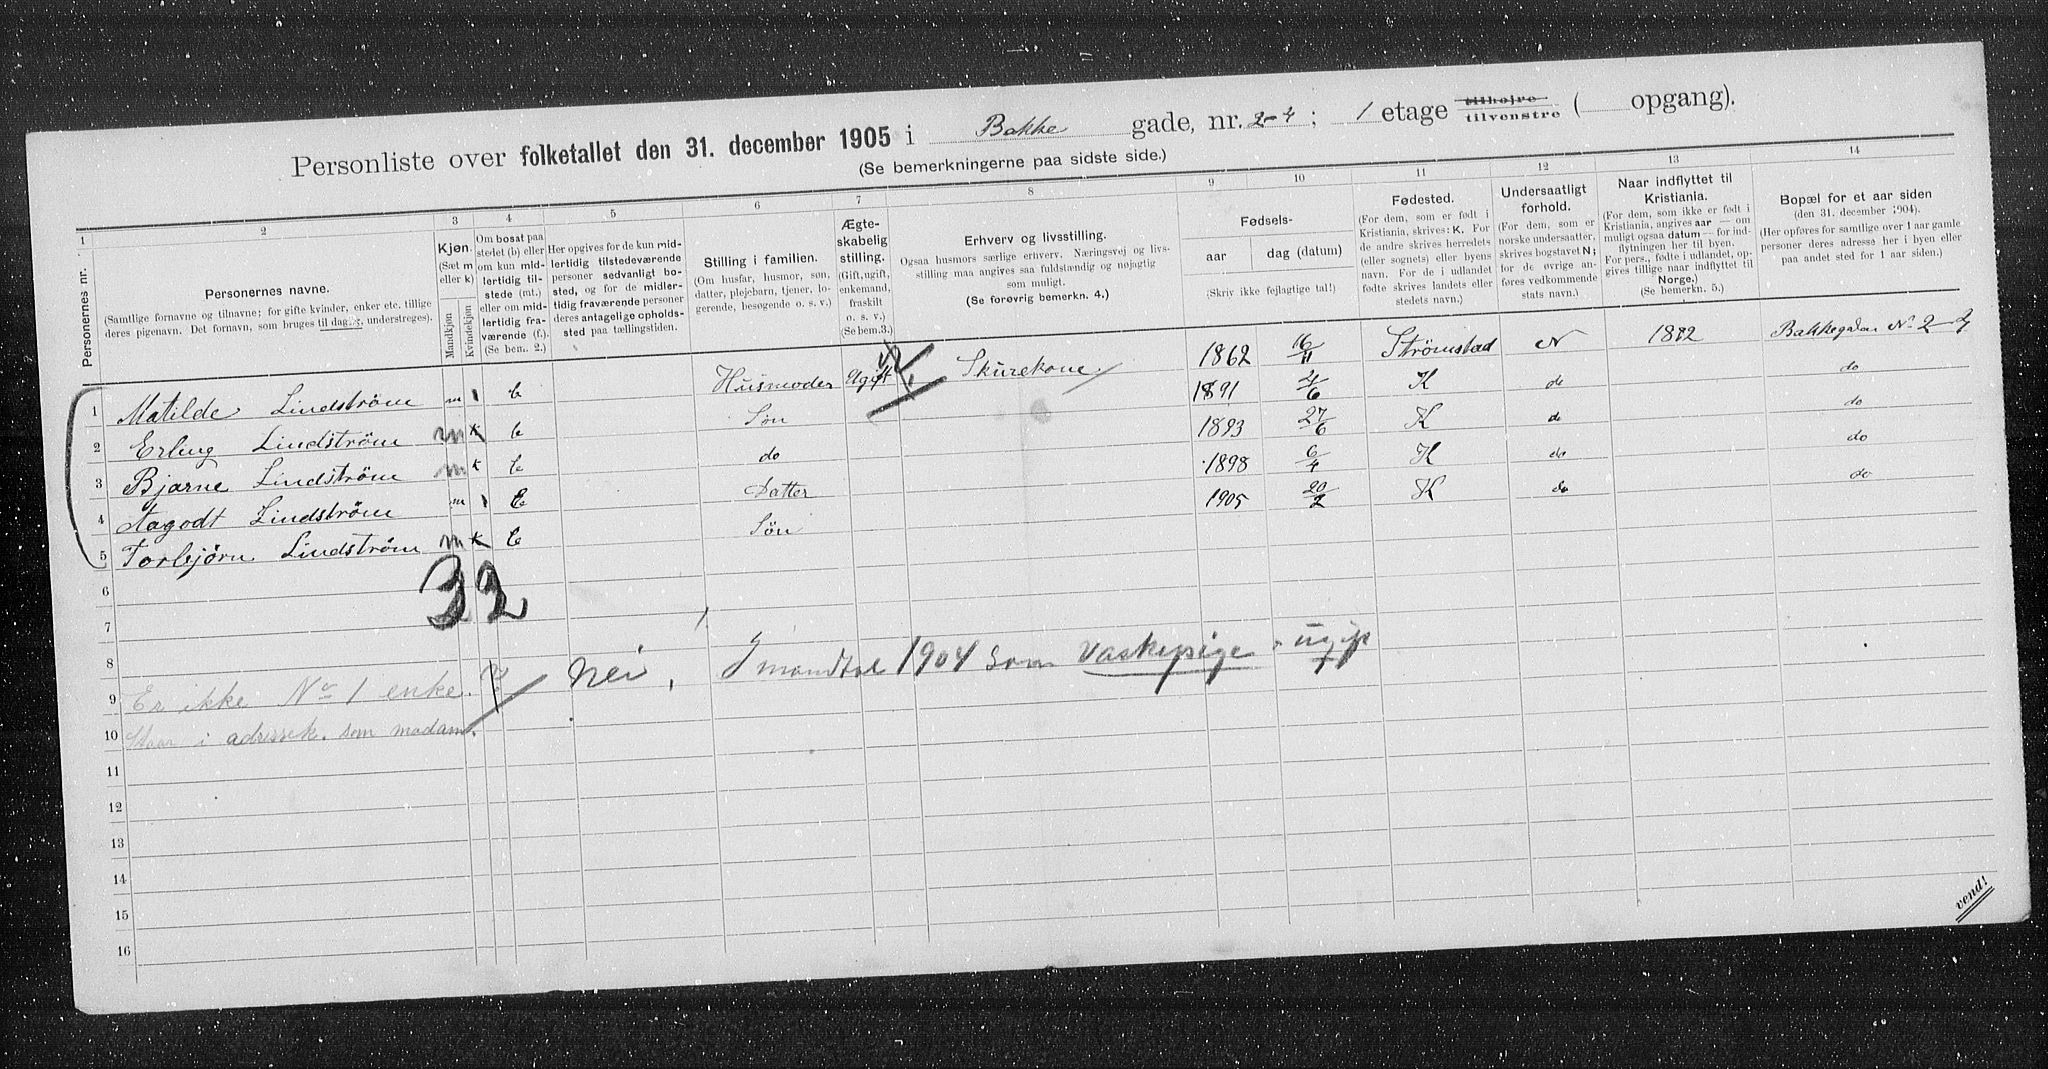 Personliste over folketallet den 31. december 1905 i Bakke gade, nr. 2-4 ; 1 etage tilhøjre tilvenstre ( opgang).
(Se bemerkningerne paa sidste side.)
1 2 3 4 5 6 7 8 9 10 11 12 13 14
Personernes nr.
Personernes navne.
(Samtlige fornavne og tilnavne; for gifte kvinder, enker etc. tillige
deres pigenavn. Det fornavn, som bruges til daglig, understreges).
Kjøn.
(Sæt m
eller k)
Mandkjøn
Kvindekjøn
Om bosat paa
stedet (b) eller
om kun mid-
lertidig til-
stede (mt.)
eller om mid-
lertidig fra-
værende (f.).
(Se bem. 2.)
Her opgives for de kun mid-
lertidig tilstedeværende
personer sedvanligt bo-
sted, og for de midler-
tidig fraværende personer
deres antagelige opholds-
sted paa tællingstiden.
Stilling i familien.
(Om husfar, husmor, søn,
datter, plejebarn, tjener, lo-
gerende, besøgende o. s. v.)
Ægte-
skabelig
stilling.
(Gift, ugift,
enkemand,
fraskilt
o. s. v.)
(Se bem.3.)
Erhverv og livsstilling.
Ogsaa husmors særlige erhverv. Næringsvej og livs-
stilling maa angives saa fuldstændig og nøjagtig
som muligt.
(Se forøvrig bemerkn. 4.)
Fødsels-
aar
dag (datum)
(Skriv ikke fejlagtige tal!)
Fødested.
(For dem, som er født i
Kristiania, skrives: K. For
de andre skrives herredets
(eller sognets) eller byens
navn. For de i udlandet
fødte skrives landets eller
stedets navn.)
Undersaatligt
forhold.
(For dem, som er
norske undersaatter,
skrives bogstavet N;
for de øvrige an-
føres vedkommende
stats navn.)
Naar indflyttet til
Kristiania.
(For dem, som ikke er født i
Kristiania, angives aar — om
muligt ogsaa datum — for ind-
flytningen her til byen.
For pers., fødte i udlandet, op-
gives tillige naar indflyttet til
Norge.)
(Se bemerkn. 5.)
Bopæl for et aar siden
(den 31. december 1904).
(Her opføres for samtlige over 1 aar gamle
personer deres adresse her i byen eller
paa andet sted for 1 aar siden.)
1 Matilde Lindström m 1 b Husmoder Ugift Skurekone 1862 16/11 Strömstad N 1882 Bakkegaden No 2-4
2 Erling Lindström m k b Søn 1891 4/6 K do do
3 Bjarne Lindström m k b do 1893 27/6 K do do
4 Aagodt Lindström m 1 b Datter 1898 6/4 K do do
5 Torbjörn Lindström m k b Søn 1905 20/2 K do do
6 32
7
8
9 Er ikke No 1 enke. nei, I mandtal 1904 som Vaskepige, ugift
10 Staar i adressek. som madam.
11
12
13
14
15
16
vend!